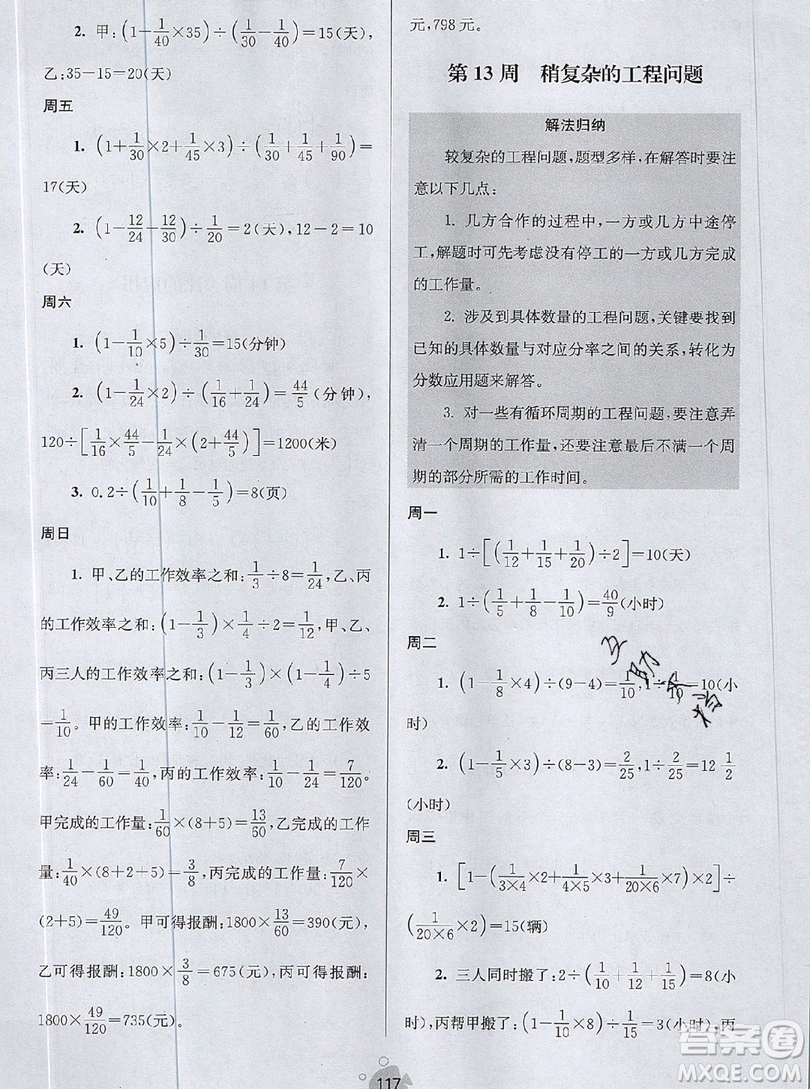 2. 甲:(1-1/40×35)÷(1/30-1/40)=15(天)
乙:35-15=20(天)
周五
1. (1+1/30×2+1/45×3)÷(1/30+1/45+1/90)=
17(天)
2. (1-12/24-12/30)÷1/20=2(天),12-2=10
(天)
周六
1. (1-1/10×5)÷1/30=15(分钟)
2. (1-1/24×2)÷(1/16+1/24)=44/5(分钟),
120÷[1/16×44/5-1/24×(2+44/5)]=1200(米)
3. 0.2÷(1/10+1/8-1/5)=8(页)
周日
1. 甲、乙的工作效率之和:1/3÷8=1/24,乙、丙
的工作效率之和:(1-1/3)×1/4÷2=1/12,甲、乙、
丙三人的工作效率之和:(1-1/3)×(1-1/4)÷5
=1/10。甲的工作效率:1/10-1/12=1/60,乙的工作效
率:1/24-1/60=1/40,丙的工作效率:1/10-1/24=7/120。
甲完成的工作量:1/60×(8+5)=13/60,乙完成的工作
量:1/40×(8+2+5)=3/8,丙完成的工作量:7/120×
(2+5)=49/120。甲可得报酬:1800×13/60=390(元),
乙可得报酬:1800×3/8=675(元),丙可得报酬:
1800×49/120=735(元)。
元,798元。
第13周 稍复杂的工程问题
解法归纳
较复杂的工程问题,题型多样,在解答时要注
意以下几点:
1. 几方合作的过程中,一方或几方中途停
工,解题时可先考虑没有停工的一方或几方完成
的工作量。
2. 涉及到具体数量的工程问题,关键要找到
已知的具体数量与对应分率之间的关系,转化为
分数应用题来解答。
3. 对一些有循环周期的工程问题,要注意弄
清一个周期的工作量,还要注意最后不满一个周
期的部分所需的工作时间。
周一
1. 1÷[(1/12+1/15+1/20)÷2]=10(天)
2. 1÷(1/5+1/8-1/10)=40/9(小时)
周二
1. (1-1/8×4)÷(9-4)=1/10,1÷1/10=10(小
时)
2. (1-1/5×3)÷(8-3)=2/25,1÷2/25=12 1/2
(小时)
周三
1. [1-(1/(3×4)×2+1/(4×5)×3+1/(20×6)×7)×2]÷
(1/(20×6)×2)=15(辆)
2. 三人同时搬了:2÷(1/10+1/12+1/15)=8(小
时),丙帮甲搬了:(1-1/10×8)÷1/15=3(小时),丙
117
互助突档
答案圈
MXQE.COM